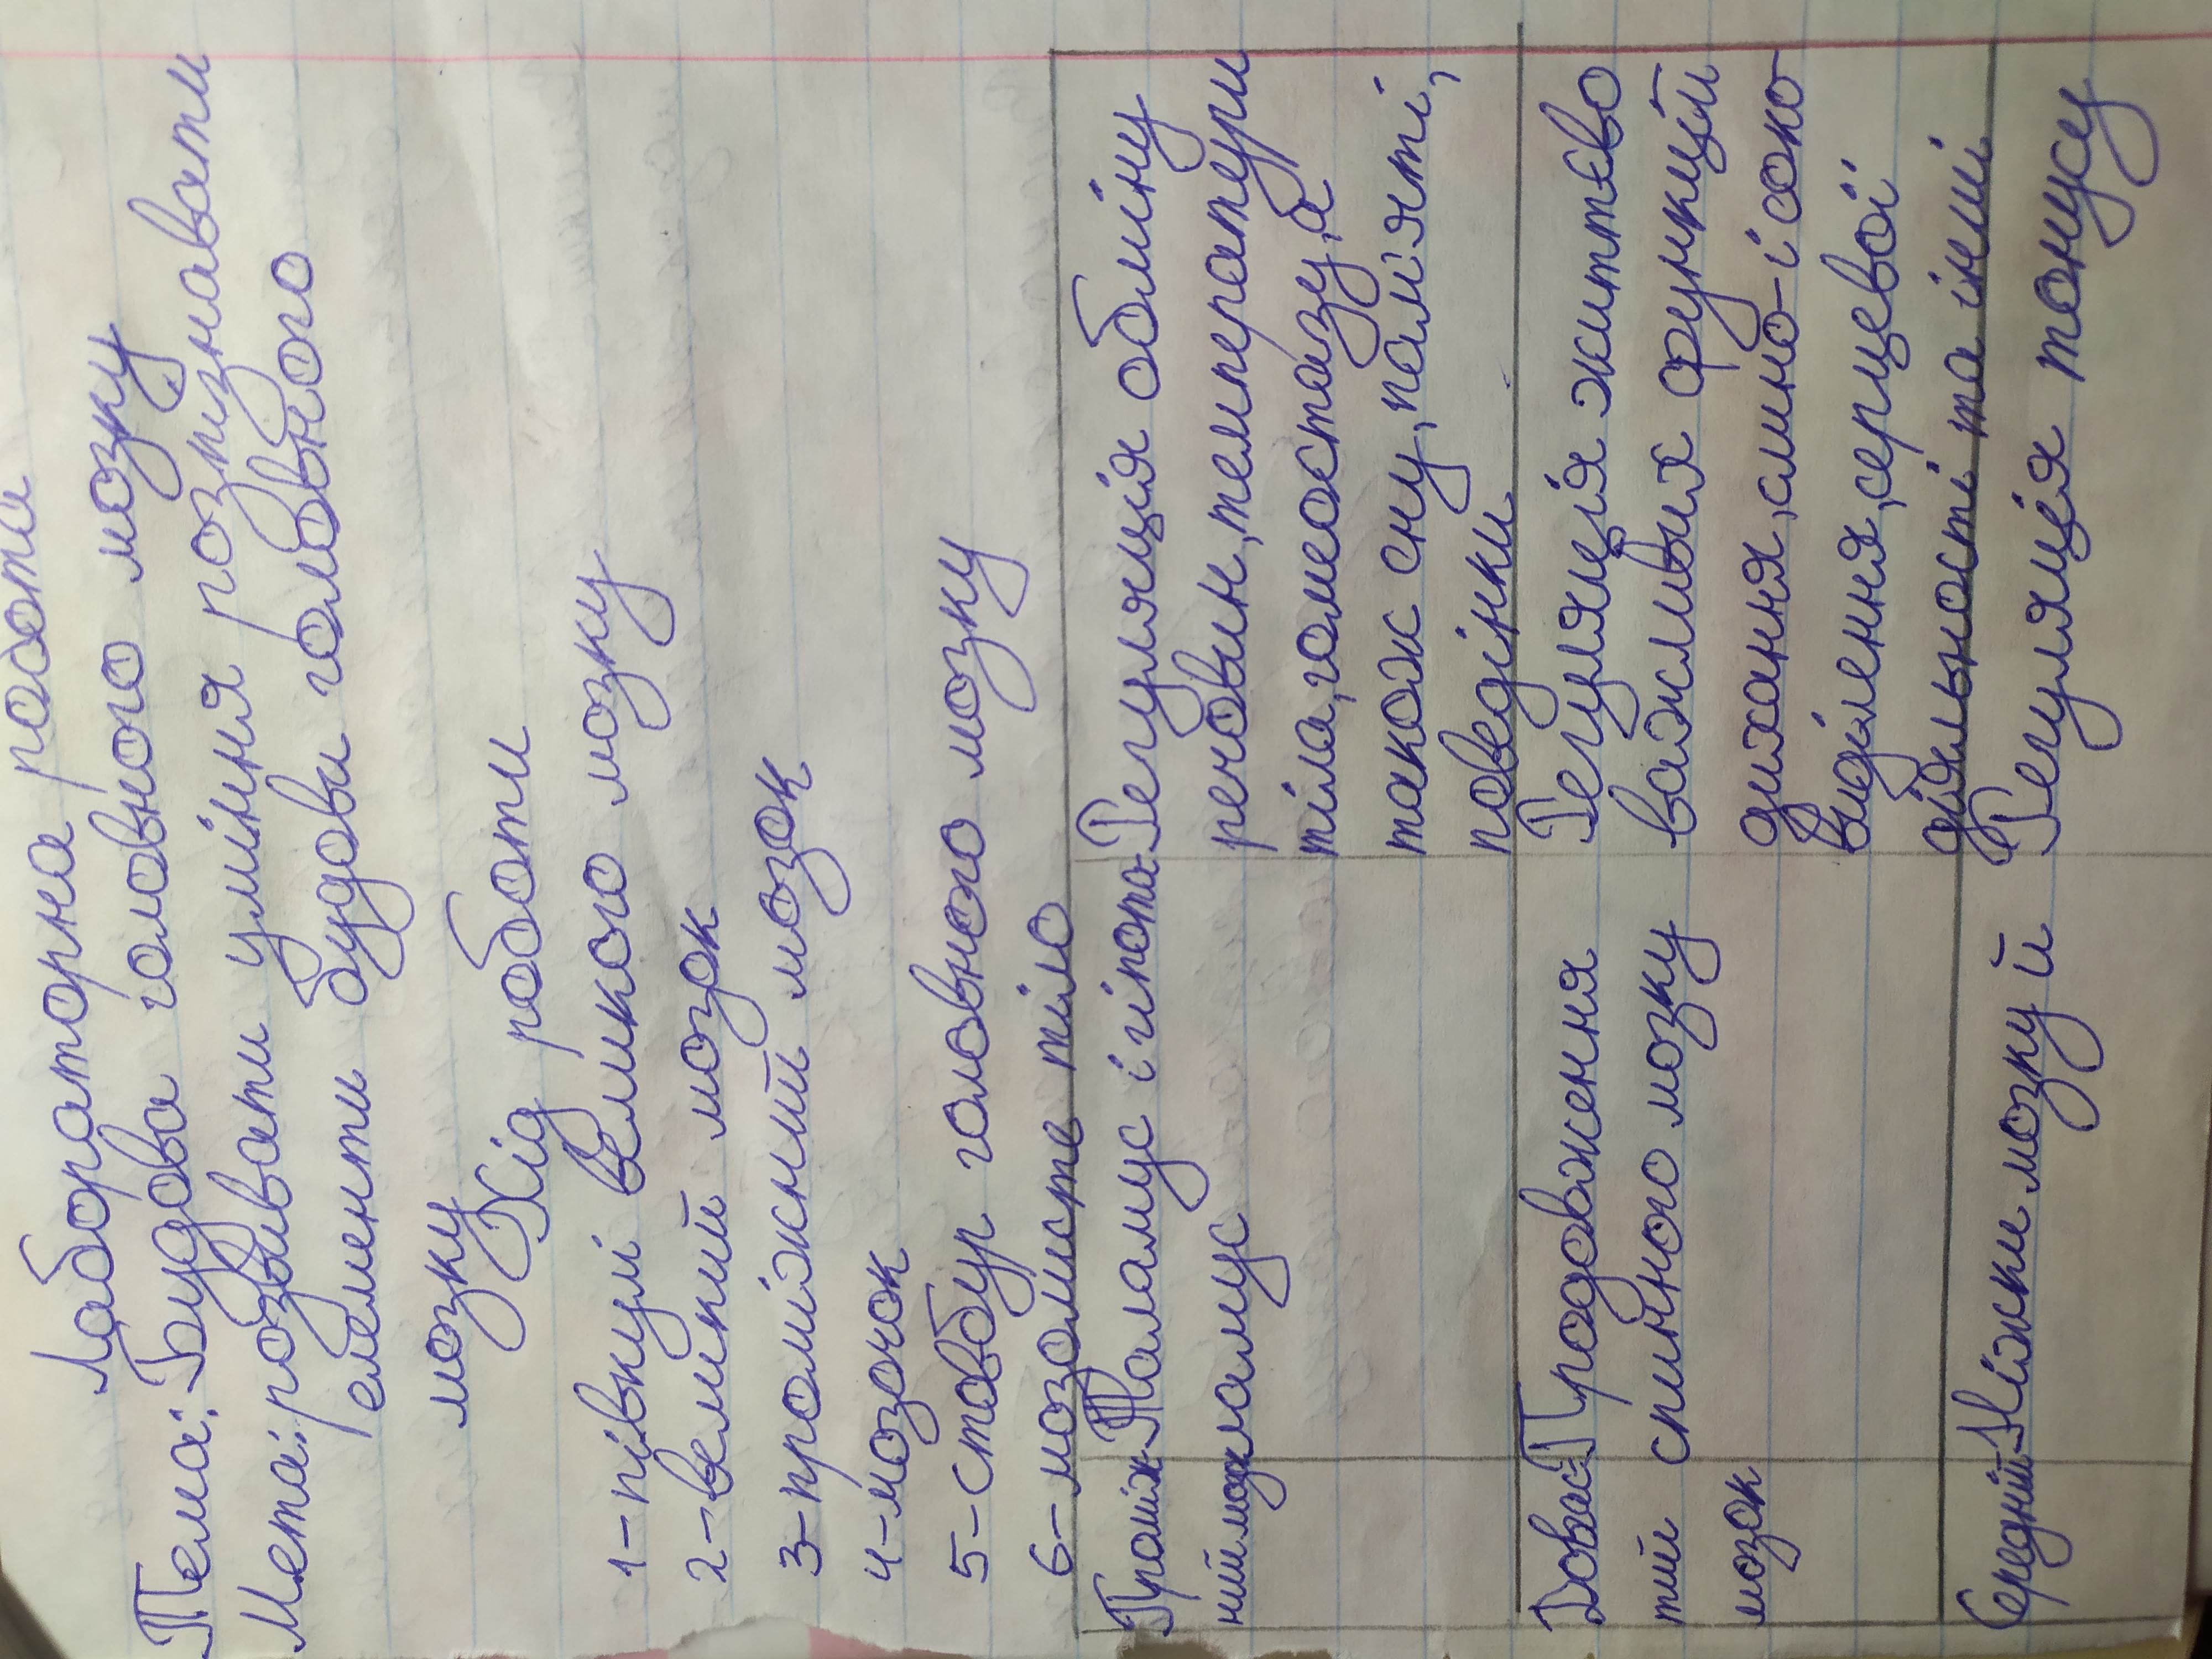 Лабораторна робота
Тема: Будова головного мозку
Мета: розвивати уміння розпізнавати
елементи будови головного
мозку
Хід роботи
1-півкулі великого мозку
2-великий мозок
3-проміжний мозок
4-мозочок
5-стовбур головного мозку
6-мозолисте тіло
Проміж- Таламус і гіпота- Регуляція обміну
ний мозок ламус речовин, температури
тіла, гомеостазу, а
також сну, пам'яті,
поведінки
Довгас- Продовження Регуляція життєво
тий спинного мозку важливих функцій
мозок дихання, слино-і соко-
виділення, серцевої
діяльності та інші
Середній Ніжки мозку й Регуляція тонусу